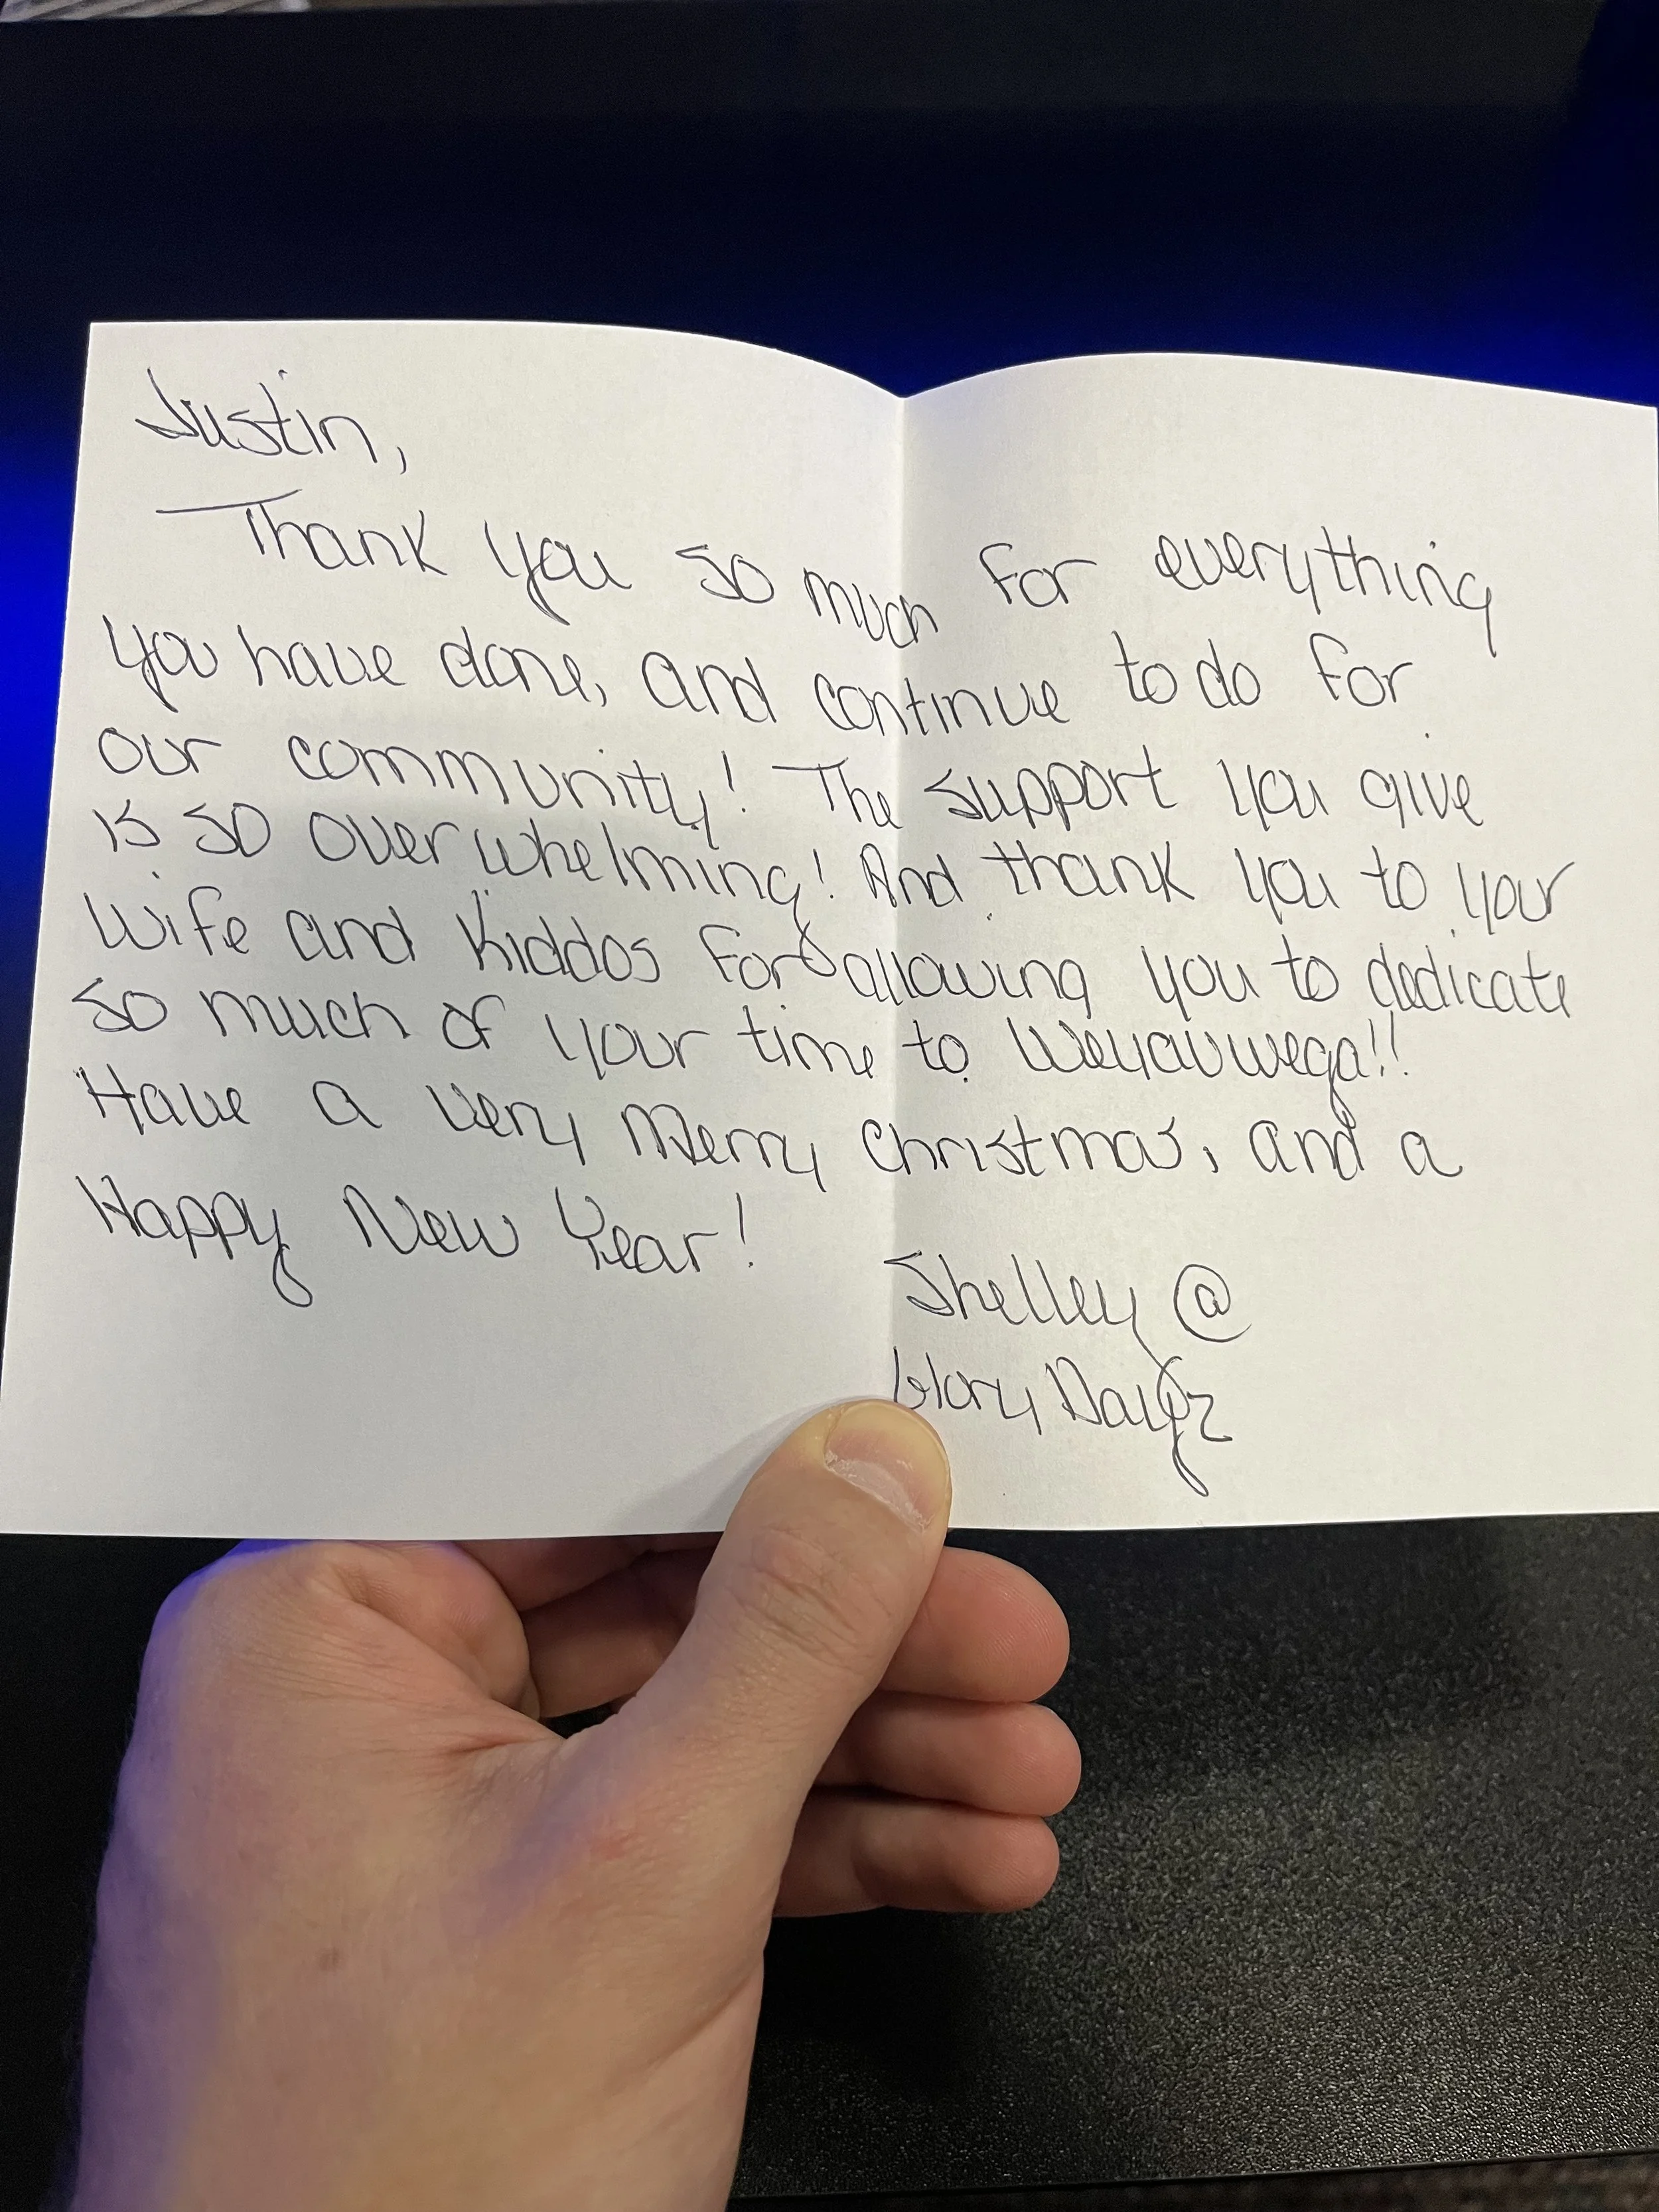 Justin,
Thank you so much for everything
you have done, and continue to do for
our community! The support you give
is so overwhelming! And thank you to your
wife and kiddos for allowing you to dedicate
so much of your time to Weyauwega!!
Have a very Merry Christmas, and a
Happy New Year!
Shelley @
Glory Dayz